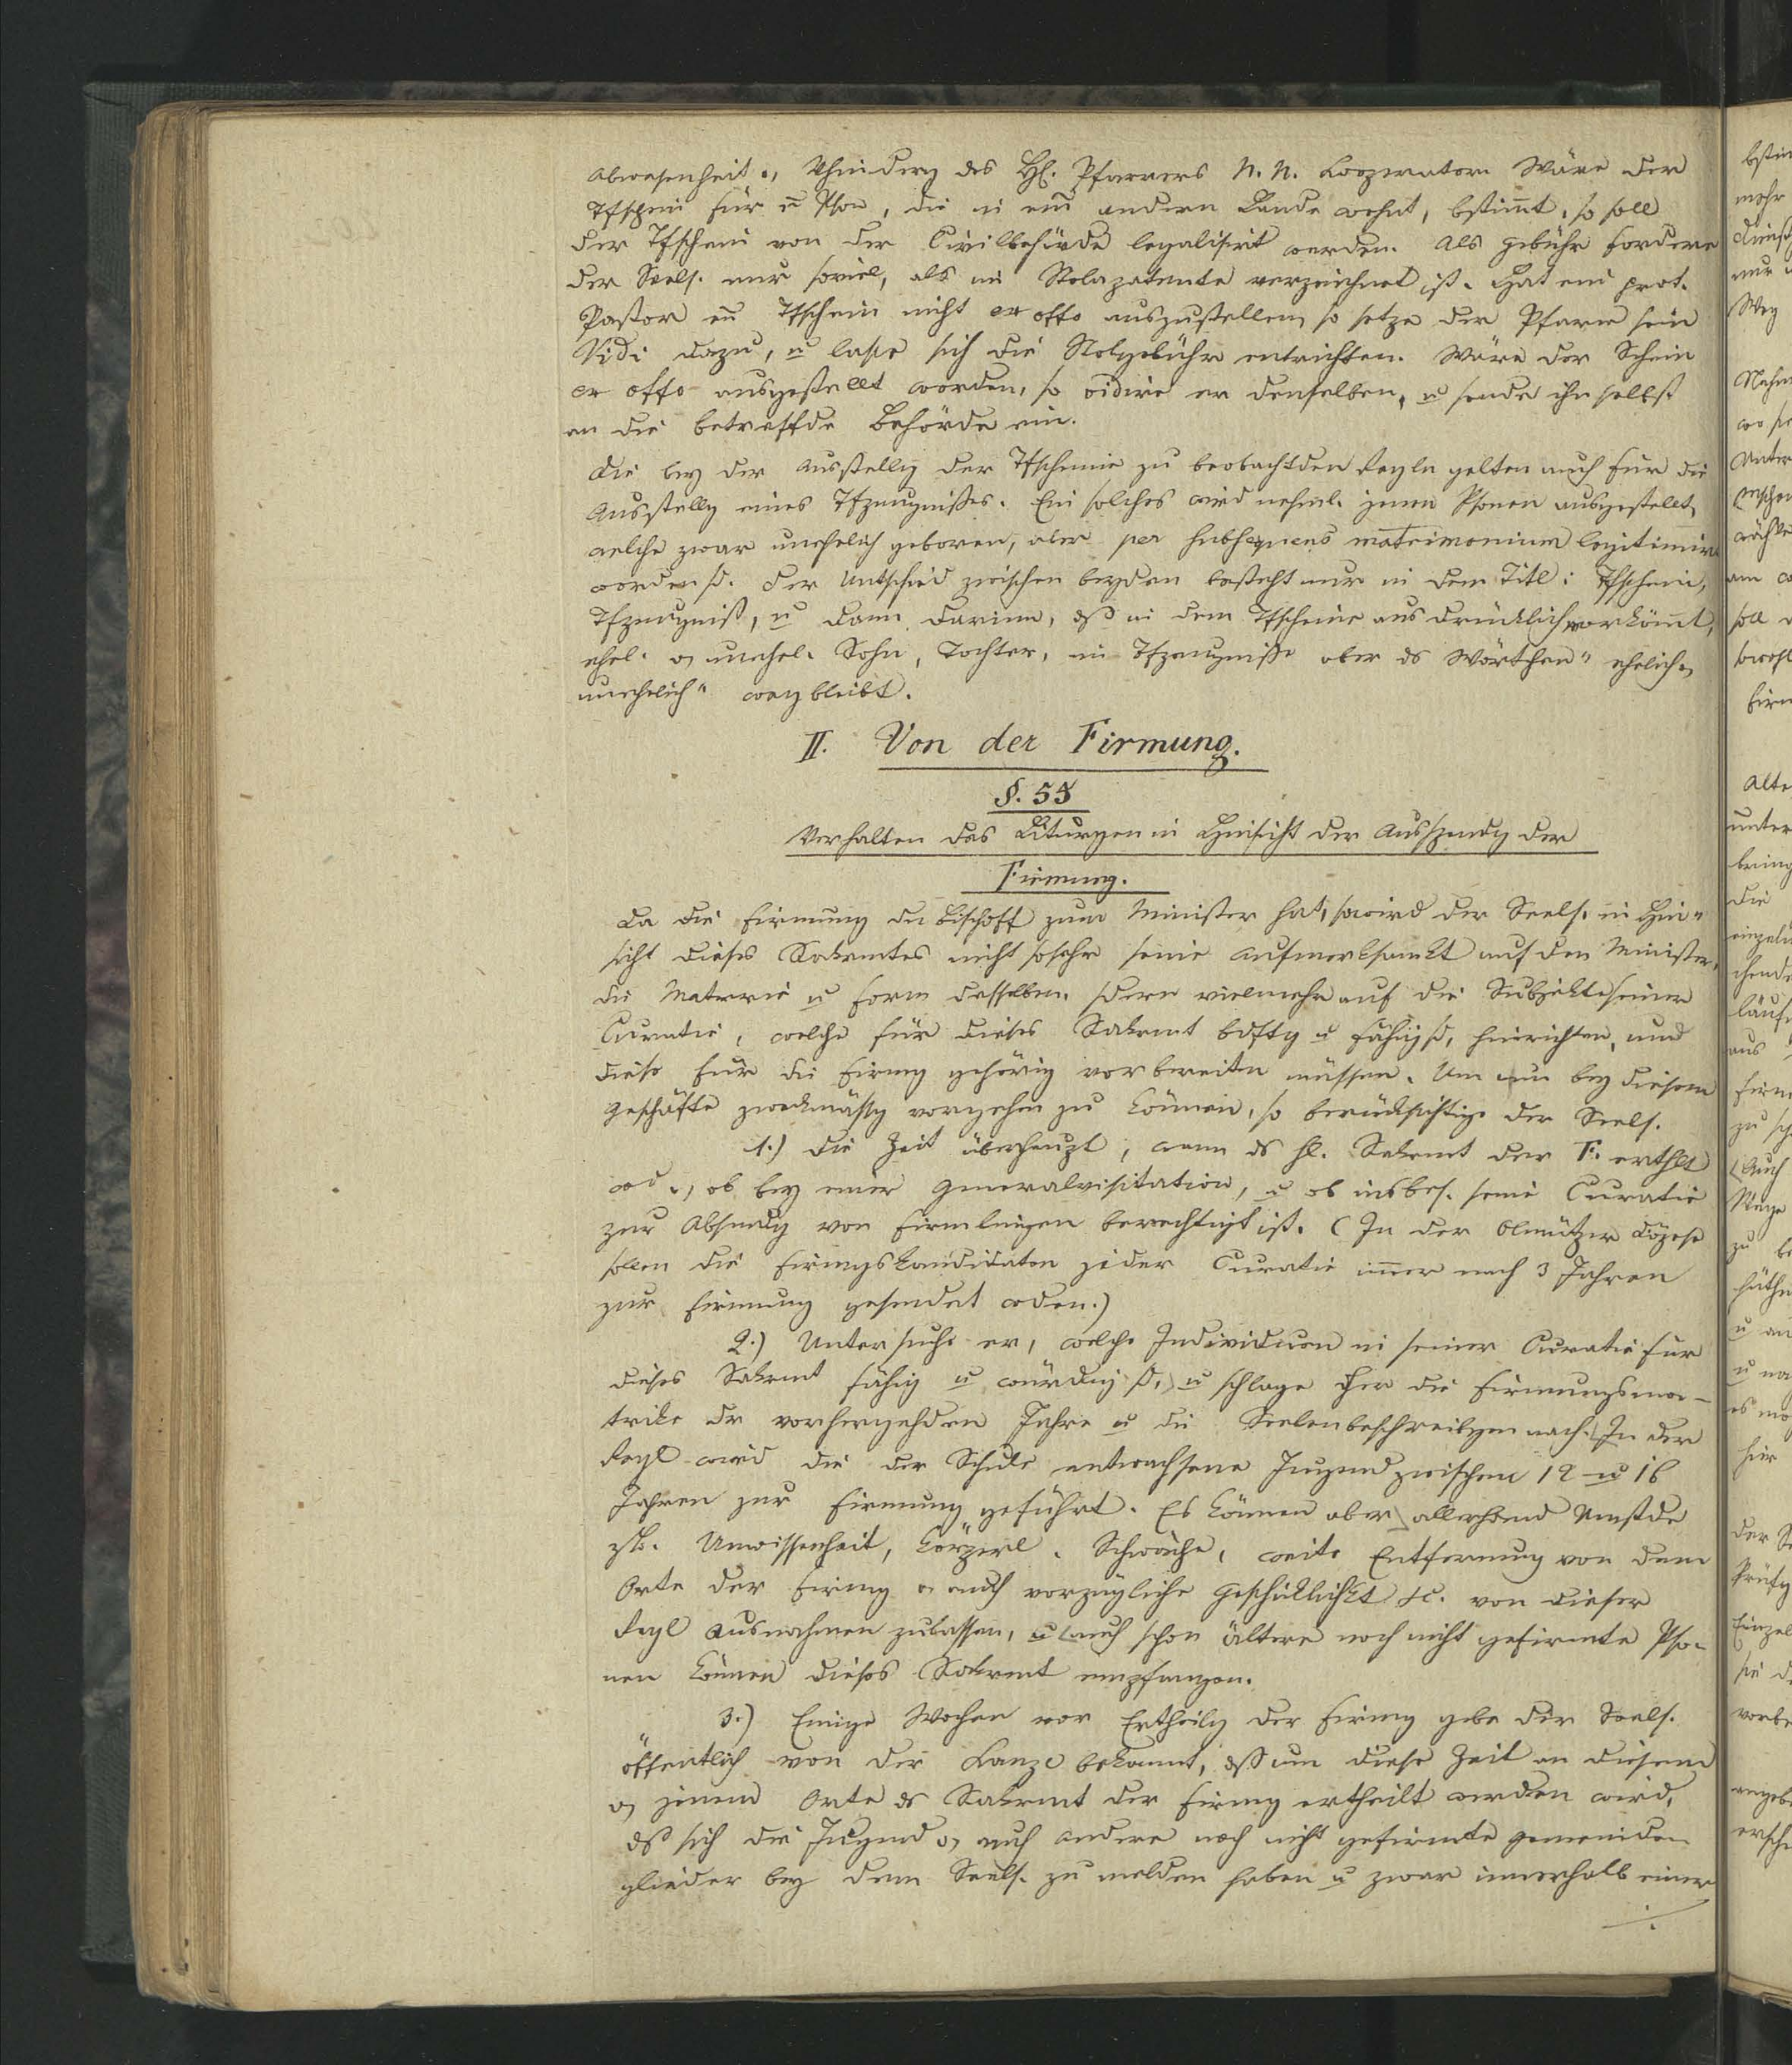 Abwesenheit o, Vhinderg des H. Pfarrers N. N. Cooperator. Wäre der
Tfschein für eē Pson, die in eim andern Lande wohnt, bstimt, so soll
der Tfschein von der Civilbehörde legalisirt werden. Als Gebühr fordere
der Seels. nur soviel, als im Stolapatente verzeichnet ist. Hat ein prot.
Pastor eū Tfschein nicht ex offo auszustellen, so setze der Pfarrer sein
Vidi dazu, u lasse sich die Stolgebühr entrichten. Wäre der Schein
ex offo ausgestellt worden, so vidire er denselben, u sende ihn selbst
an die betreffde Behörde ein.
Die bey der Ausstellg der Tfscheine zu beobachtden Regln gelten auch für die
Ausstellg eines Tfzeugnißes. Ein solches wird nehml. jenen Psonen ausgestellt,
welche zwar unehelich geboren, aber per subsequens matrimonium legitimirt
worden sd. Der Untschied zwischen beyden besteht nur in dem Titl: Tfschein,
Tfzeugniß, u dann darinn, dß in dem Tfscheine ausdrücklich vorkömt,
ehel. o, unehel. Sohn, Tochter, im Tfzeugniße aber ds Wörtchen "ehelich,
unehelich" wegbleibt.
II. Von der Firmung.
§. 55
Verhalten des Liturgen in Hinsicht der Ausspendg der
Firmung.
Da die Firmung den Bischoff zum Minister hat, so wird der Seels. in Hin"
sicht dieses Sakrmtes nicht sosehr seine Aufmerksamkt auf den Minister,
die Materie u Form desselben, sdern vielmehr auf die Subjekte seiner
Curatie, welche für dieses Sakrmt bdftg u fähig sd, hinrichten, und
diese für die Firmg gehörig vorbereiten müssen. Um nun bey diesem
Geschäfte zweckmässg vorgehen zu können, so berücksichtige der Seels.
1.) Die Zeit überhaupt, wann ds hl. Sakrmt der F. erthlt
wd, o, ob bey einer Generalvisitation, u ob insbes. seine Curatie
zur Absendg von Firmlingen berechtigt ist. (In der Olmützer Diözese
sollen die Firmgskandidaten jeder Curatie imer nach 3 Jahren
zur Firmung gesendet wden.)
2.) Untersuche er, welche Individuen in seiner Curatie für
dieses Sakrmt fähig u würdig sd, u schlage hier die Firmungsma-
trike dr vorhergehden Jahre u die Seelenbeschreibgen nach. In der
Regl wird die der Schule entwachsene Jugend zwischen 12 u 16
Jahren zur Firmung geführt. Es können aber allerhand Umstde
zB. Unwissenheit, körperl. Schwäche, weite Entfernung von dem
Orte der Firmg o, auch vorzügliche Geschicklichkt &c. von dieser
Regl Ausnahmen zulassen, u auch schon ältere noch nicht gefirmte Pso-
nen können dieses Sakrmt empfangen.
3.) Einige Wochen vor Ertheilg der Firmg gebe der Seels.
öffentlich von der Kanzl bekannt, dß um diese Zeit an diesem
o, jenem Orte ds Sakrmt der Firmg ertheilt werden wird,
dß sich die Jugend o, auch andere noch nicht gefirmte Gemeinde-
glieder bey dem Seels. zu melden haben u zwar innerhalb einer